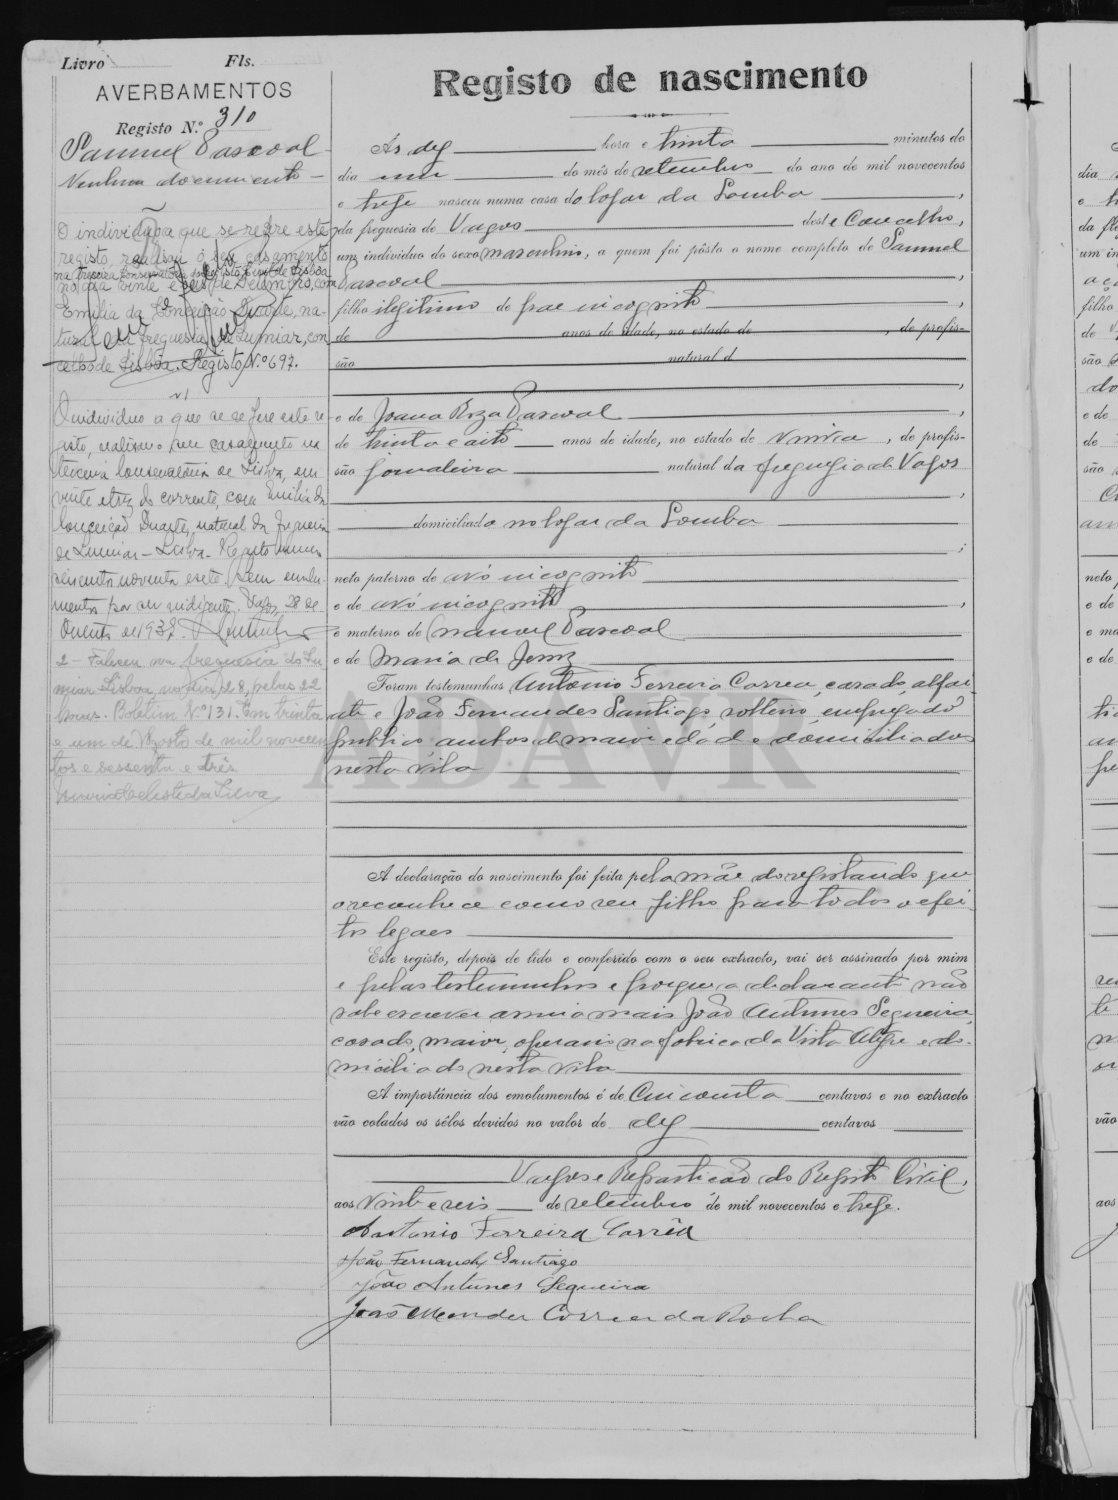 Livro Fls.
AVERBAMENTOS
Registo N.º 310
Samuel Pascoal
Nenhum documento
O individuo a que se refere este
registo, realisou o seu casamento
na terceira Conservatória do Registo Civil de Lisboa
no dia vinte e seis de Dezembro, com
Emilia da Conceição Duarte, na-
tural da freguesia de Lumiar, con
celho de Lisboa. Registo N.º 697.
N 1
O individuo a que se refere este re
gisto, realisou o seu casamento na
terceira Conservatória de Lisboa, em
vinte e trez do corrente, com Emilia da
Conceição Duarte, natural da freguesia
de Lumiar - Lisboa. Registo numero
seiscentos noventa e sete. Sem emolu-
mentos por ser indigente. Vagos, 28 de
de 193
2 - Faleceu na freguesia do Lu
miar Lisboa, no dia 28, pelas 22
horas. Boletim N.º 131. Em trinta
e um de Agosto de mil novecen
tos e sessenta e três
Maria Celeste da Silva
Registo de nascimento
Às dez hora e trinta minutos do
dia um do mês de setembro do ano de mil novecentos
e treze nasceu numa casa do logar da Lomba,
da freguesia de Vagos deste Concelho,
um individuo do sexo masculino, a quem foi pôsto o nome completo de Samuel
Pascoal,
filho ilegitimo de pae incognito,
de anos de idade, no estado de, de profis-
são natural d
,
e de Joana Roza Pascoal,
de trinta e oito anos de idade, no estado de viuva, de profis-
são jornaleira natural da freguesia de Vagos
,
domiciliada no logar da Lomba
;
neto paterno de avó incognito
e de avó incognito,
e materno de Manuel Pascoal
e de Maria de Jesus
Foram testemunhas Antonio Ferreira Correa, casado, alfai-
ate e João Fernandes Santiago, solteiro, empregado
publico, ambos de maior edade e domiciliados
nesta vila
ADAVR
A declaração do nascimento foi feita pela mãe do registando que
o reconhece como seu filho para todos os efei-
tos legaes
Este registo, depois de lido e conferido com o seu extracto, vai ser assinado por mim
e pelas testemunhas e porque a declarante não
sabe escrever assina mais João Antunes Sequeira,
casado, maior, operario na fabrica da Vista Alegre e do-
miciliado nesta vila
A importância dos emolumentos é de Cincoenta centavos e no extracto
vão colados os sêlos devidos no valor de dez centavos
Vagos e Repartição do Registo Civil,
aos vinte e seis de setembro de mil novecentos e treze.
Antonio Ferreira Corrêa
João Fernandes Santiago
João Antunes Sequeira
João Mendes Correia da Rocha